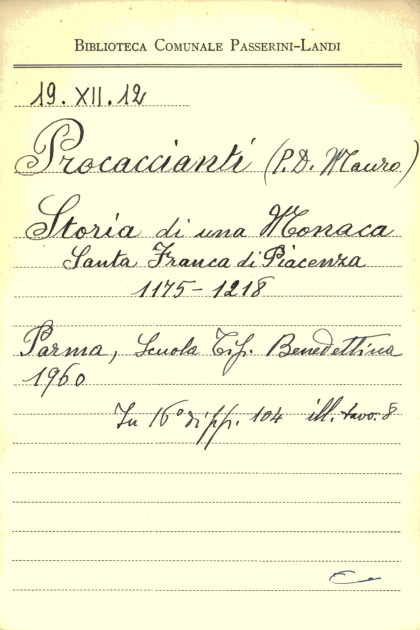 BIBLIOTECA COMUNALE PASSERINI-LANDI
19. XII. 12
Procaccianti (P. D. Mauro)
Storia di una Monaca
Santa Franca di Piacenza
1175 - 1218
Parma, Scuola Tip. Benedettina
1960
In 16° di pp. 104 ill. tavo. 8